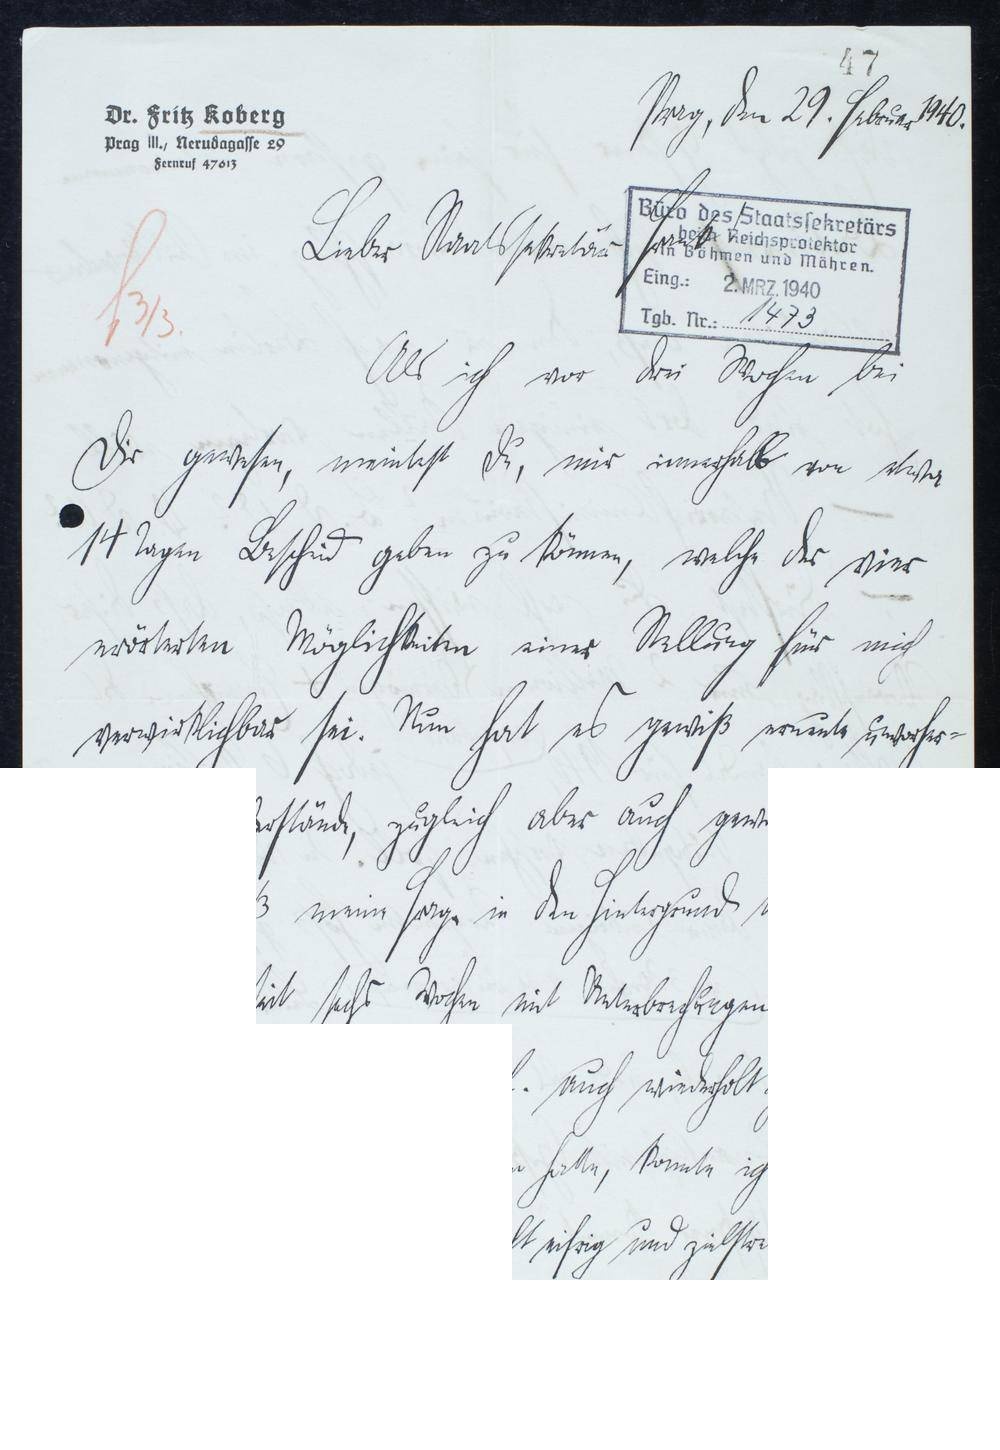 47
Prag, den 29. Februar 1940.
Dr. Fritz Koberg
Prag III., Nerudagasse 29
Fernruf 47613
Lieber Staatssekretär Frank
Büro des Staatssekretärs
beim Reichsprotektor
in Böhmen und Mähren.
Eing.: 2. MRZ. 1940
Tgb. Nr.: 1473
3/3.
Als ich vor drei Wochen bei
Dir gewesen, meintest Du, mir innerhalb von etwa
14 Tagen Bescheid geben zu können, welche der vier
erörterten Möglichkeiten einer Stellung für mich
verwirklichbar sei. Nun hat es gewiß erneute unvorher-
erstände, zugleich aber auch gew
ß meine Frage in den Hintergrund
seit sechs Wochen mit Unterbrechungen
auch wiederholt
hatte, konnte ich
eifrig und zielstre